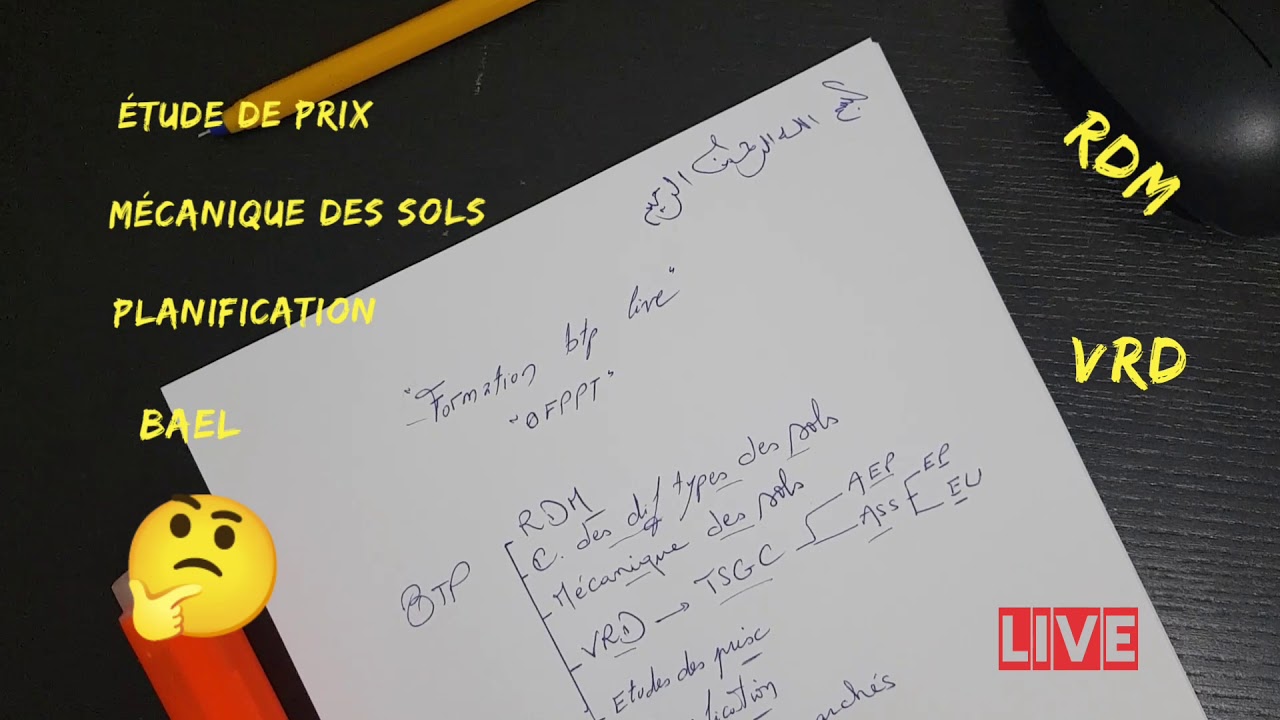 ÉTUDE DE PRIX
MÉCANIQUE DES SOLS
PLANIFICATION
BAEL
RDM
VRD
LIVE
بسم الله الرحمن الرحيم
"Formation btp live"
"OFPPT"
BTP
RDM
C. des dif types des sols
Mécanique des sols
VRD → TSGC
AEP
ASS
EP
EU
Etudes des prix